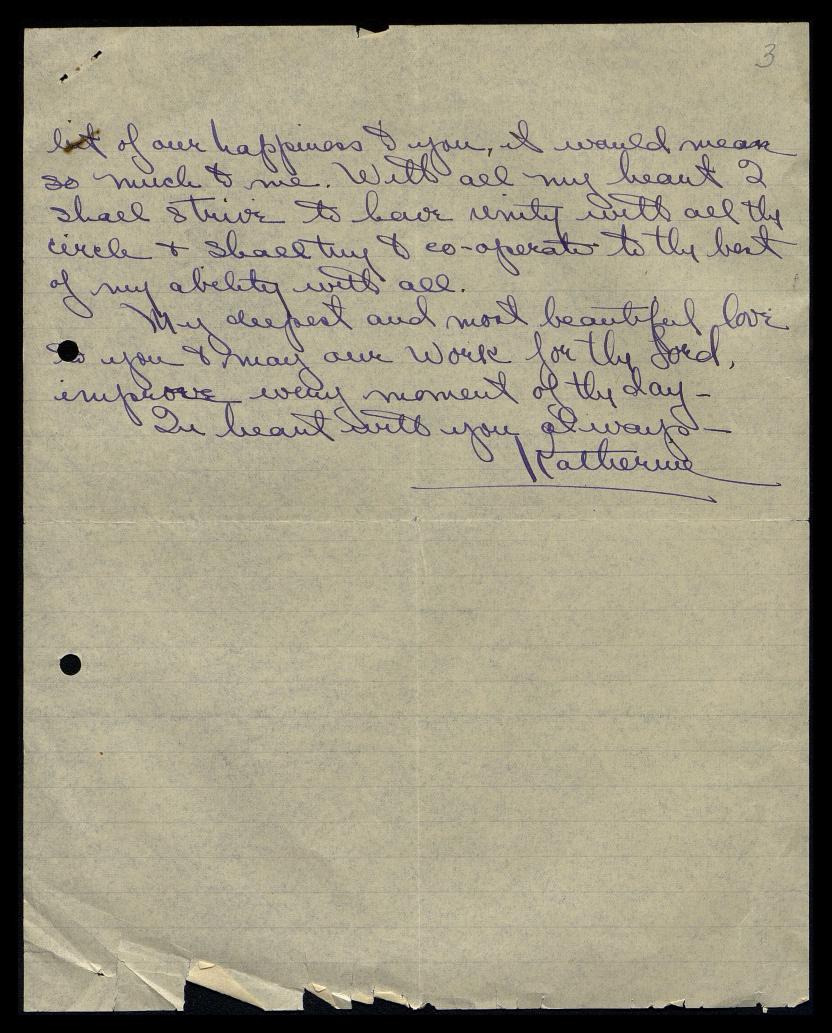 3
bit of our happiness to you, it would mean
so much to me. With all my heart I
shall strive to have unity with all the
circle + shall try to co-operate to the best
of my ability with all.
My deepest and most beautiful love
to you & may our work for the Lord,
improve every moment of the day -
In heart with you always -
Katherine